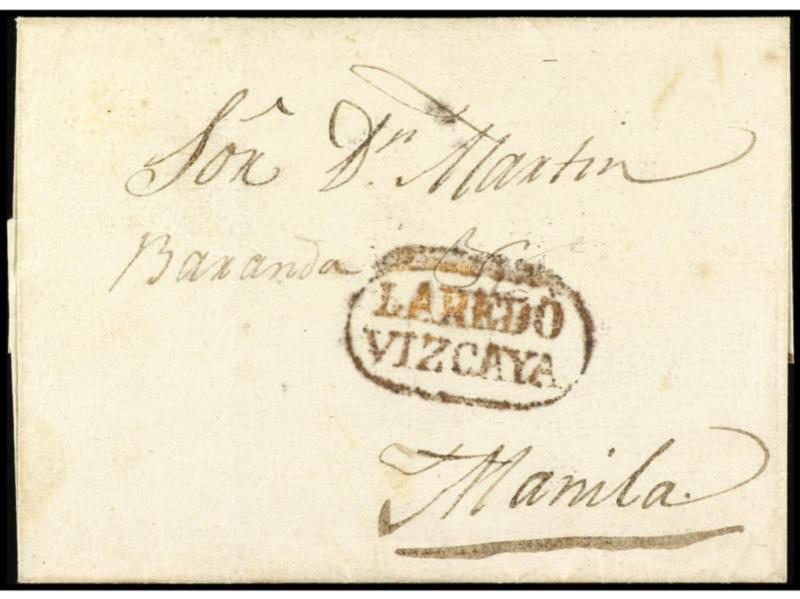 Sôr Dn. Martin
Baranda
LAREDO
VIZCAYA
Manila.